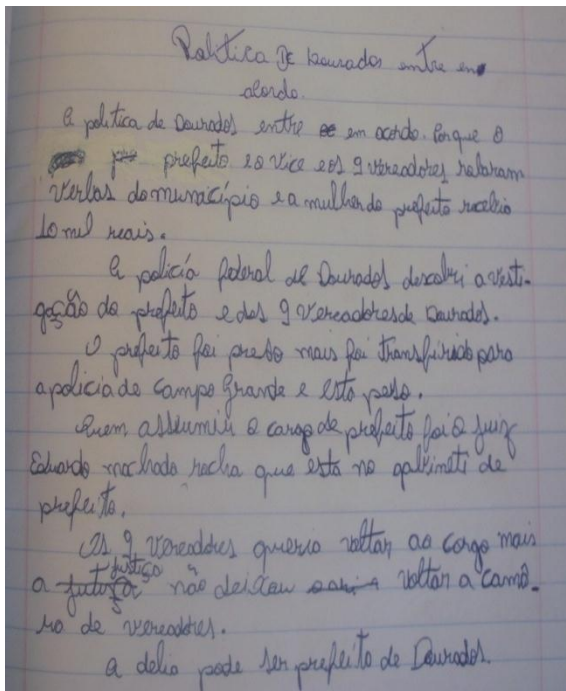 Política De Dourados entre em
acordo.
A política de Dourados entre em acordo. Porque o
prefeito e o vice e os 9 vereadores
verbas do município e a mulher do prefeito recebeu
10 mil reais.
A polícia federal de Dourados descobri a vesti-
gação do prefeito e dos 9 vereadores de Dourados.
O prefeito foi preso mais foi transferido para
a polícia de Campo Grande e esta peso.
Quem assumiu o cargo de prefeito foi o juiz
Eduardo machado rocha que esta no gabineti de
prefeito.
Os 9 vereadores queria voltar ao cargo mais
a justiça não deixou voltar a camâ-
ra de vereadores.
a delia pode ser prefeito de Dourados.